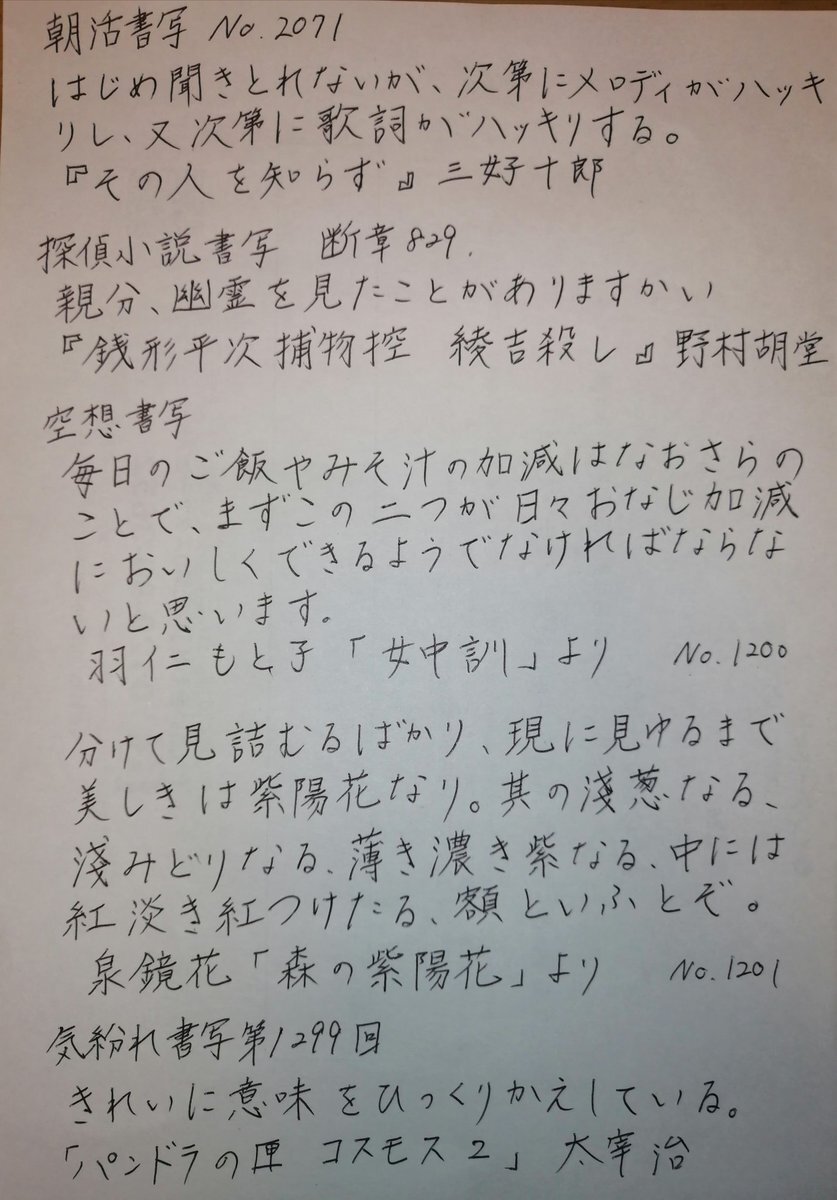 朝活書写 No.2071
はじめ聞きとれないが、次第にメロディがハッキ
リし、又次第に歌詞がハッキリする。
『その人を知らず』三好十郎
探偵小説書写 断章829.
親分、幽霊を見たことがありますかい
『銭形平次捕物控 綾吉殺し』野村胡堂
空想書写
毎日のご飯やみそ汁の加減はなおさらの
ことで、まずこの二つが日々おなじ加減
においしくできるようでなければならな
いと思います。
羽仁もと子「女中訓」より No.1200
分けて見詰むるばかり、現に見ゆるまで
美しきは紫陽花なり。其の淺葱なる、
淺みどりなる、薄き濃き紫なる、中には
紅淡き紅つけたる、額といふとぞ。
泉鏡花「森の紫陽花」より No.1201
気紛れ書写第1299回
きれいに意味をひっくりかえしている。
「パンドラの匣 コスモス2」太宰治